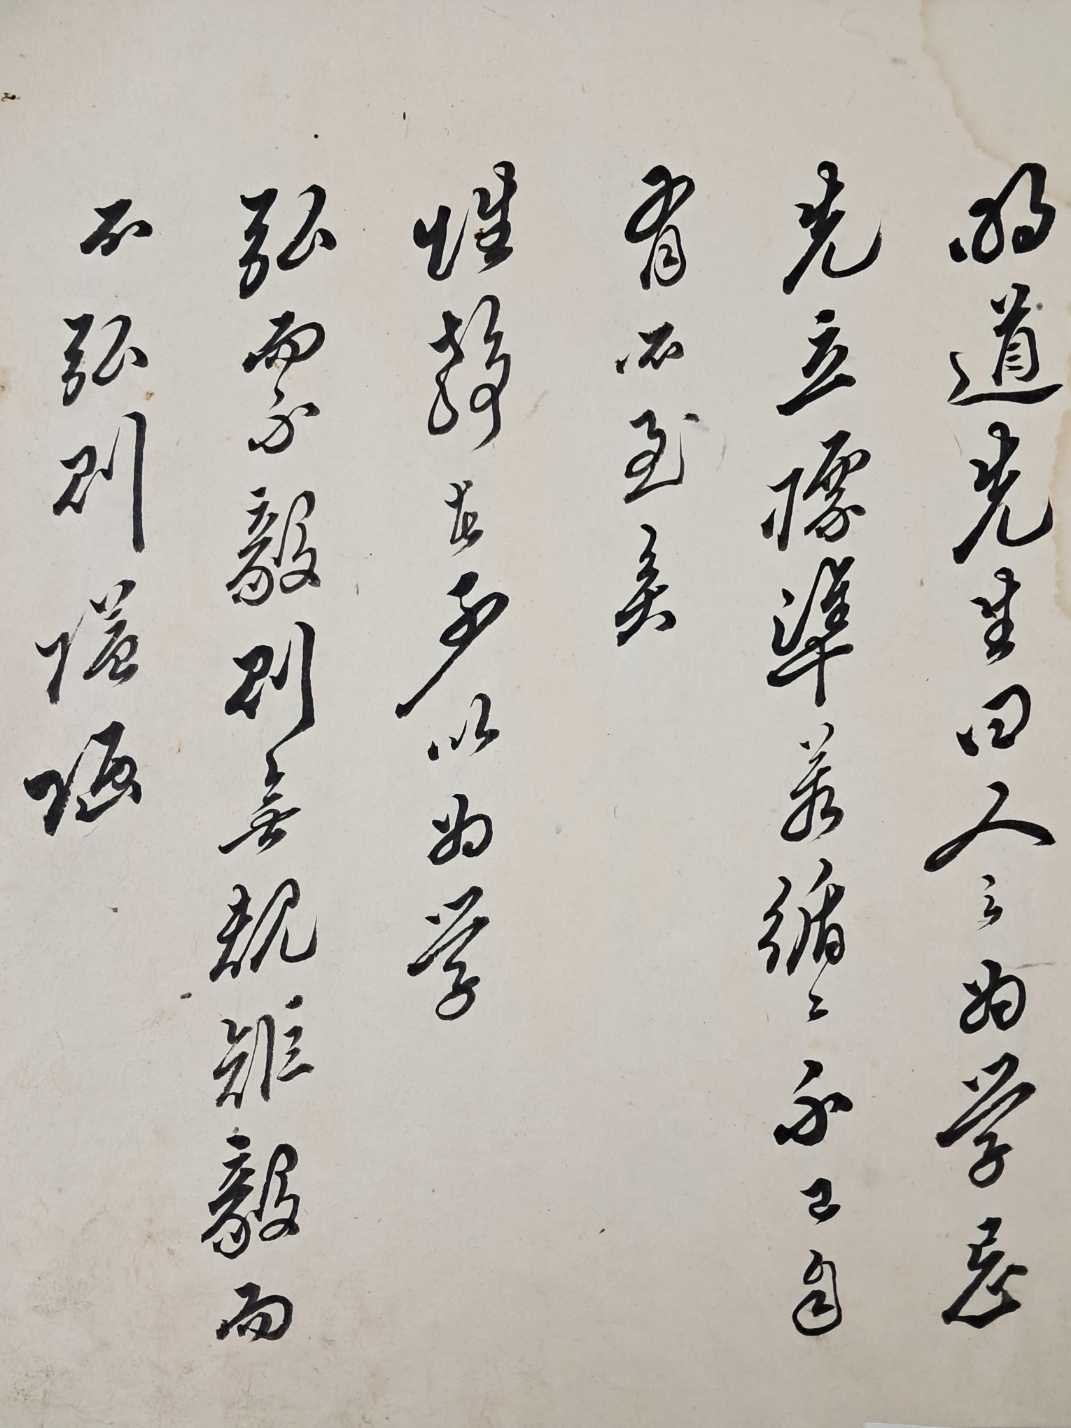 明道先生曰人之為學忌
先立標準若循〻不已自
有所至矣
性靜者可以為學
弘而不毅則無規雖毅而
不弘則隘陋